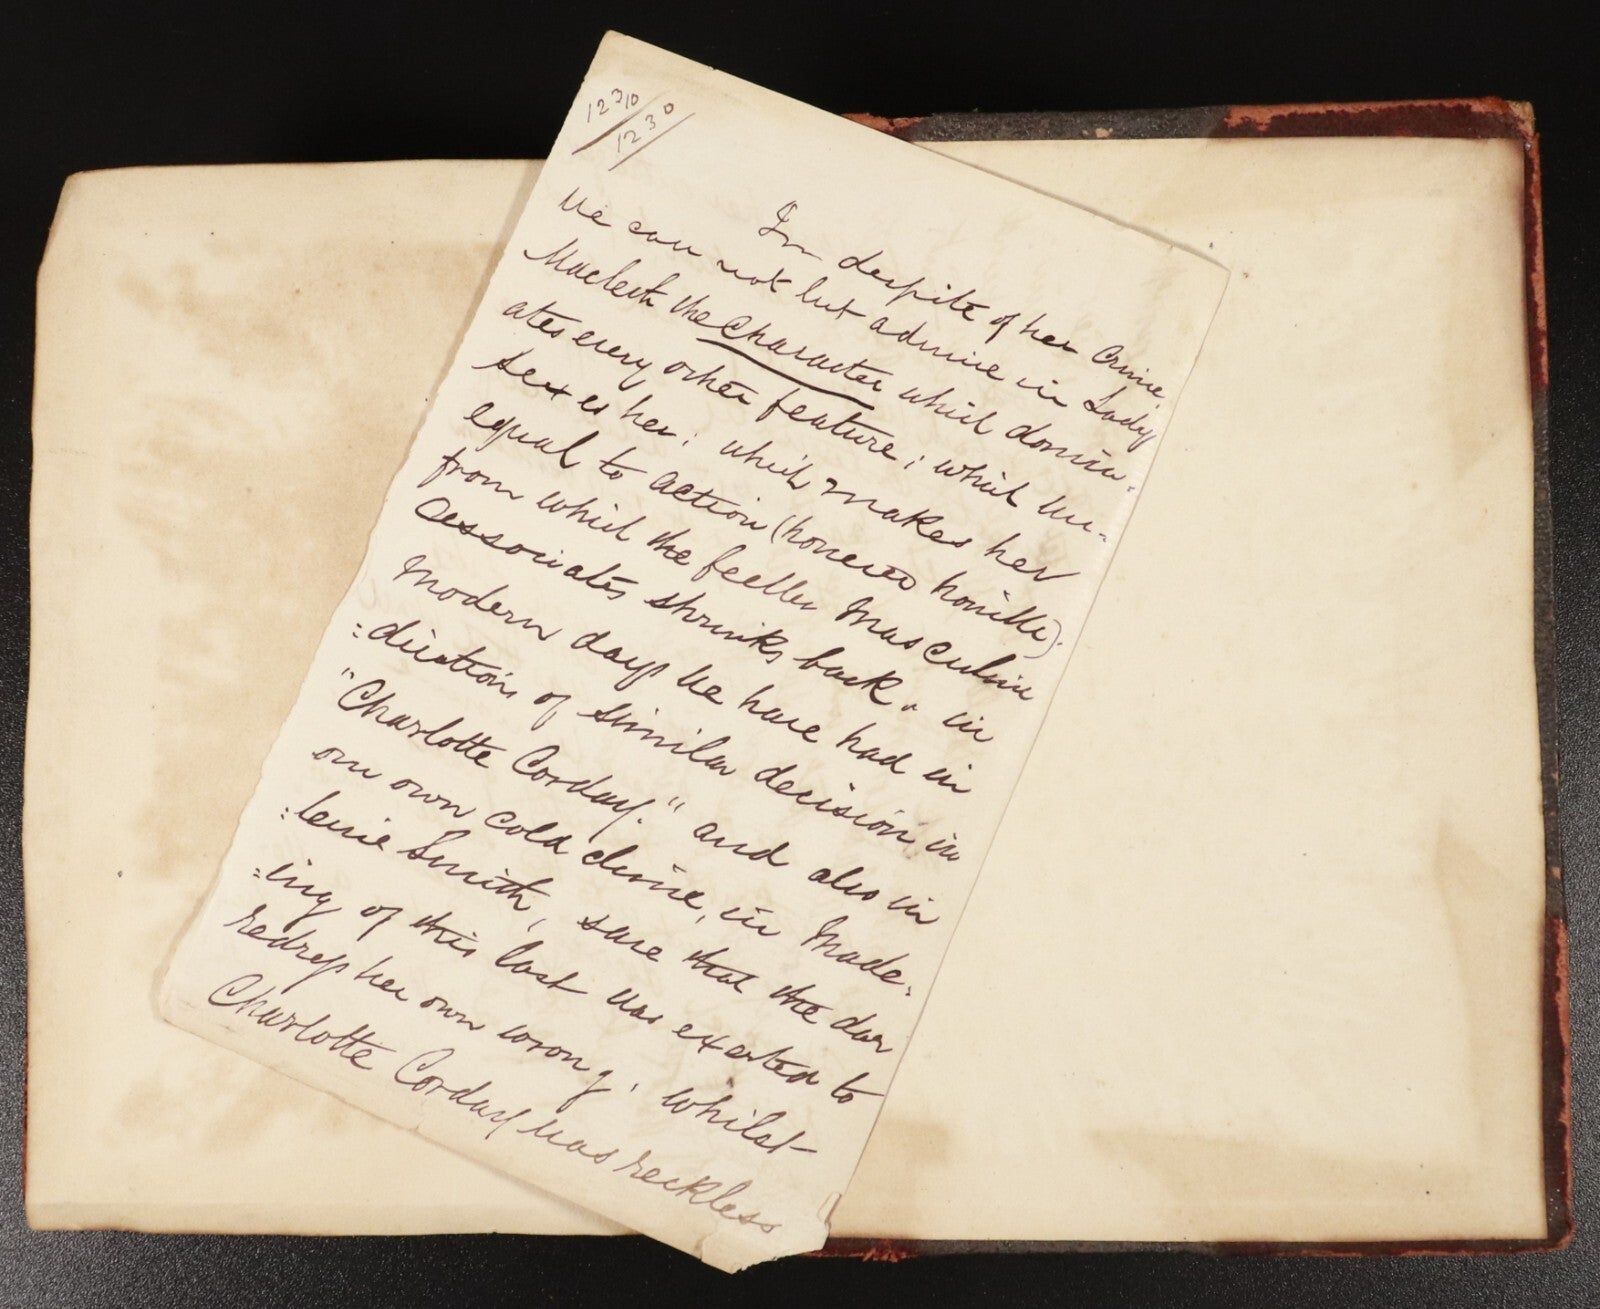 1230/
1230/
In despite of her Crime,
we can not but admire in Lady
Macbeth the Character which domin-
ates every other feature; which un-
sexes her; which makes her
equal to action (however horrible)
from which the feebler Masculine
associates shrinks back. in
Modern days we have had in
=dications of similar decision in
"Charlotte Corday." and also in
our own cold clime, in Made-
=leine Smith, save that the dar
=ing of this last was exerted to
redress her own wrong, whilst
Charlotte Corday was reckless